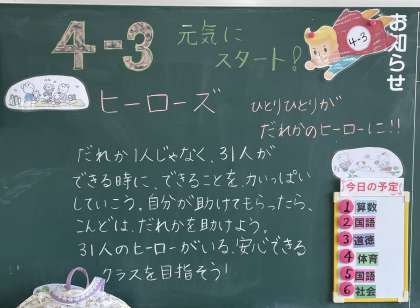 4-3
元気に
スタート!
お知らせ
4-3
ヒーローズ
ひとりひとりが
だれかのヒーローに!!
だれか1人じゃなく、31人が
できる時に、できることを、力いっぱい
していこう。自分が助けてもらったら、
こんどは、だれかを助けよう。
31人のヒーローがいる、安心できる
クラスを目指そう!
今日の予定
1 算数
2 国語
3 道徳
4 体育
5 国語
6 社会